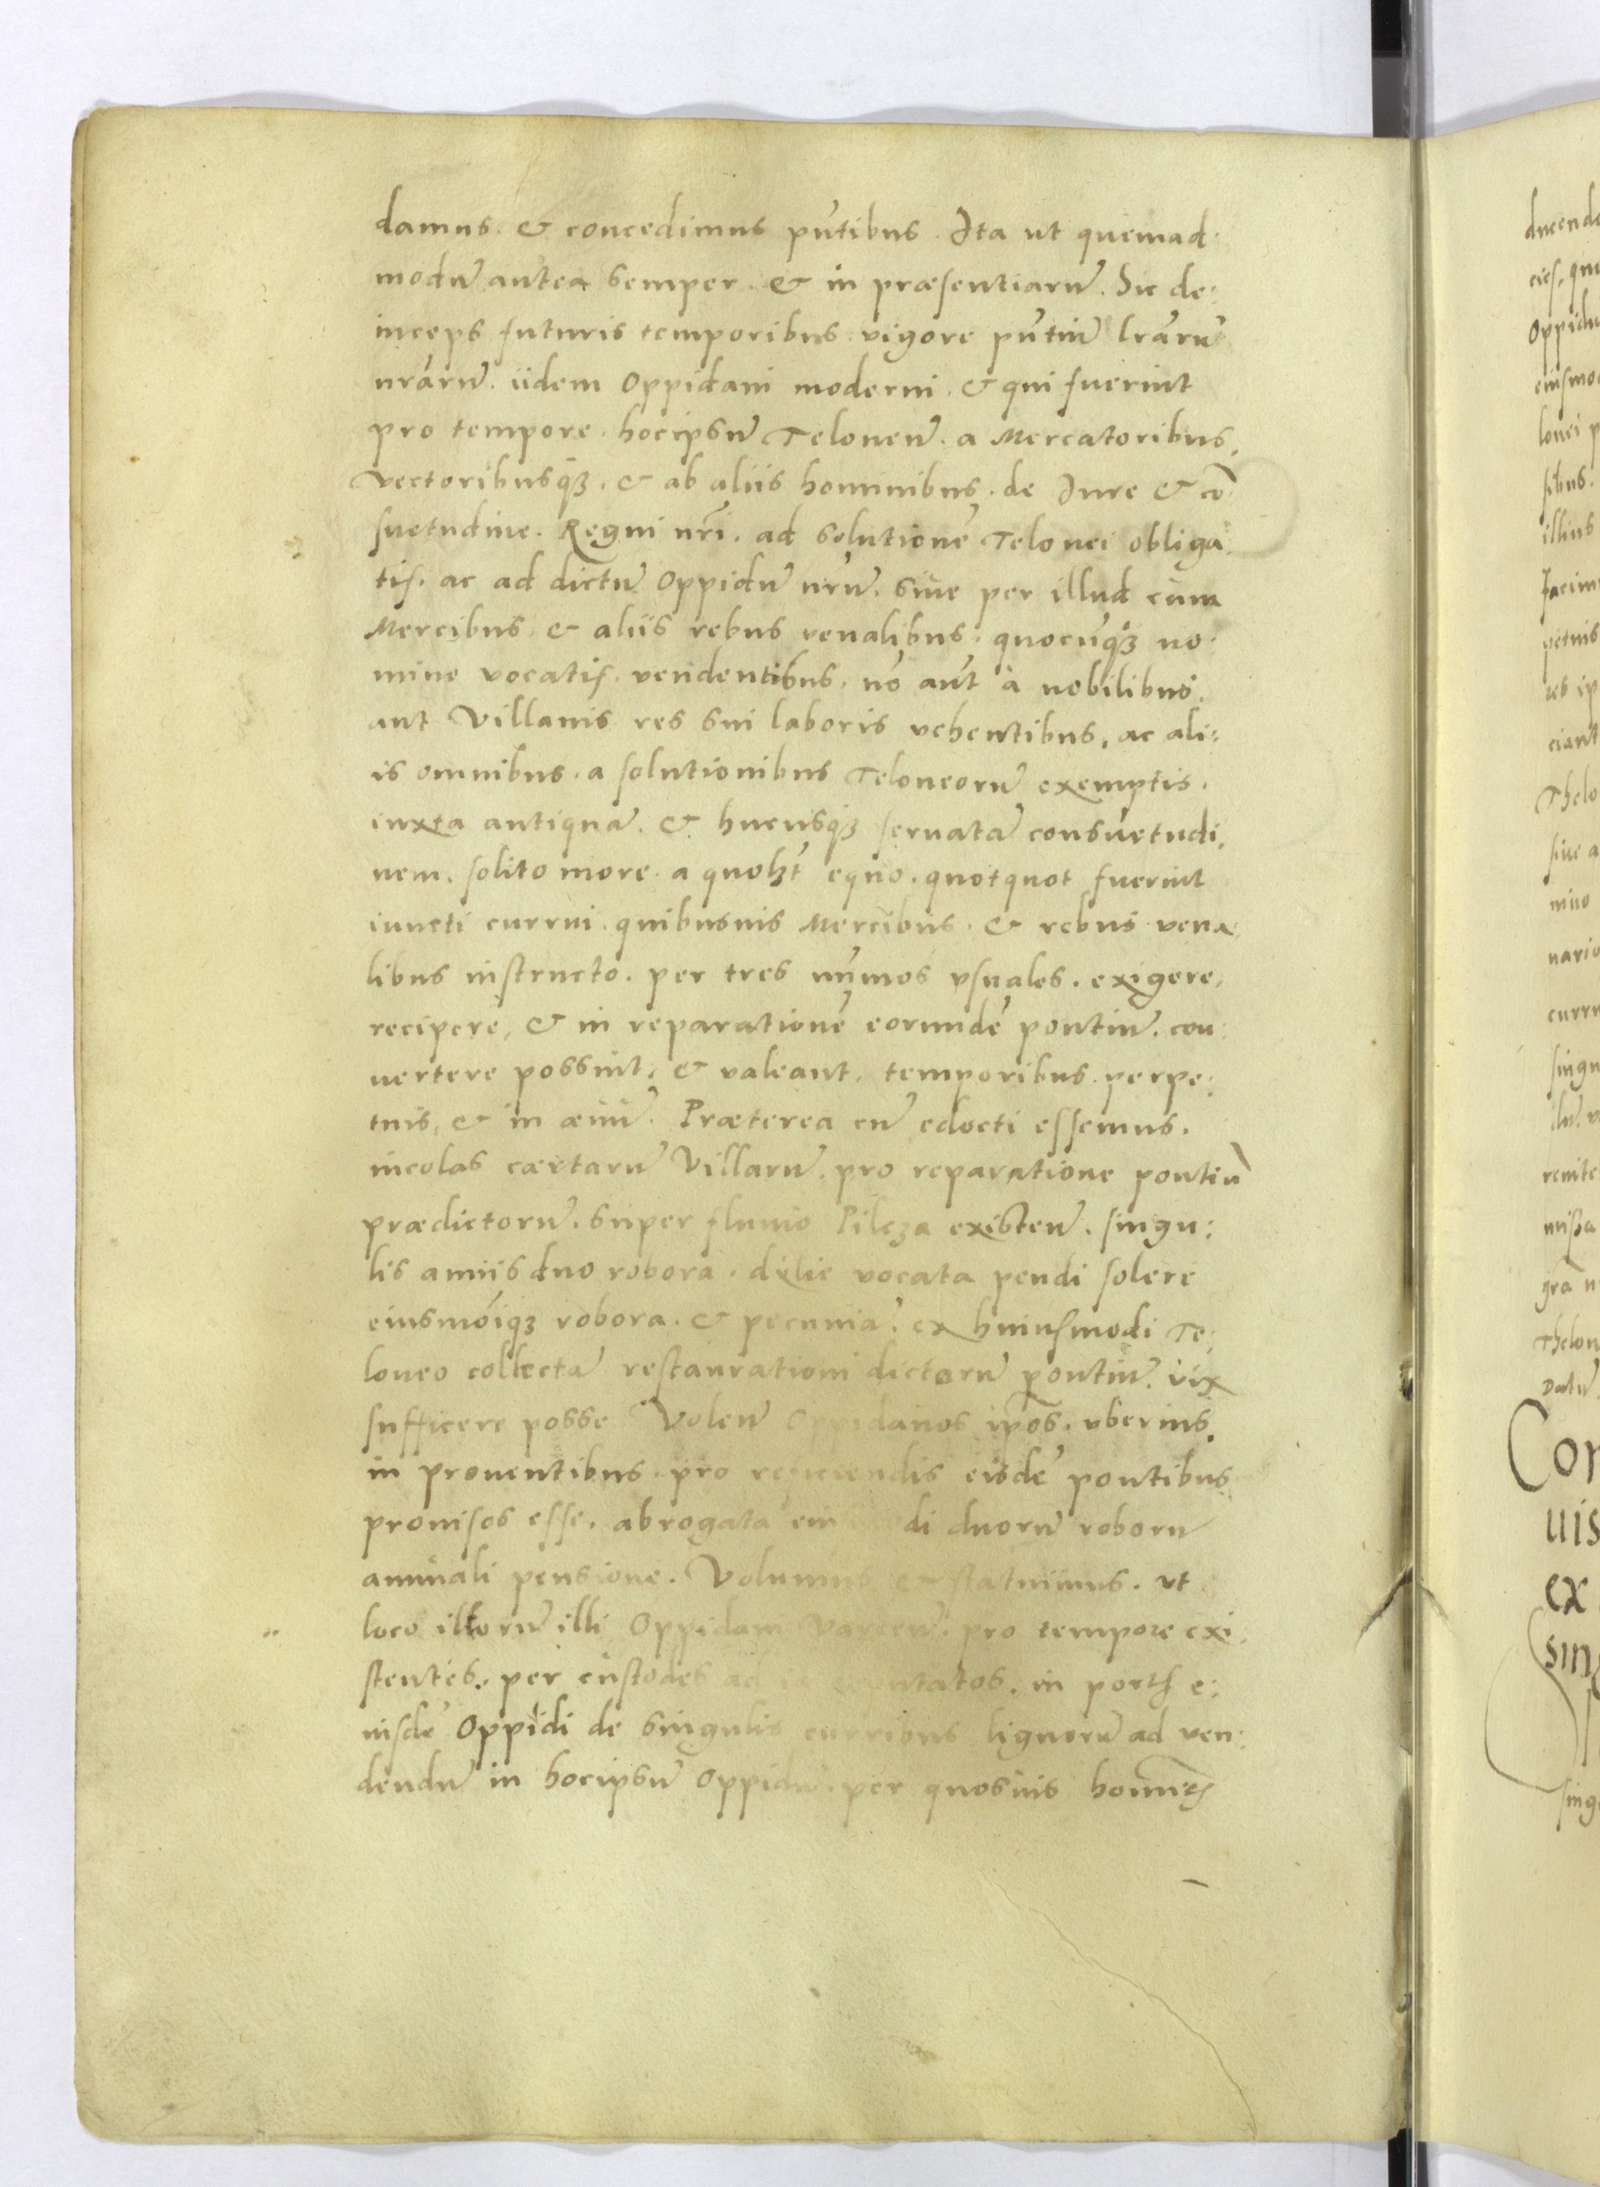 damus. & concedimus pñtibus. Ita ut quemad:
modũ antea semper. & in præsentiarũ. Sic de:
inceps futuris temporibus vigore pñtiũ lrarũ
nrarũ. iidem Oppidani moderni. & qui fuerint
pro tempore. hocipsũ Teloneũ. a Mercatoribus,
Vectoribusqꝫ. & ab aliis hominibus. de Iure & cõ
suetudine. Regni nri. ad solutionẽ Telonei obliga
tis. ac ad dictũ Oppidũ nrũ. siue per illud cum
Mercibus. & aliis rebus venalibus. quocũqꝫ no:
mine vocatis. vendentibus. nõ aut à nobilibus.
aut Villanis res sui laboris vehentibus, ac ali:
is omnibus. a solutionibus Teloneorũ exemptis.
iuxta antiquã. & hucusqꝫ seruatã consuetudi,
nem. solito more. a quoꝫt equo. quotquot fuerint
iuncti currui. quibusuis Mercibus. & rebus vena
libus instructo. per tres nũmos vsuales. exigere,
recipere, & in reparationẽ eorundẽ pontiũ. con:
uertere possint, & valeant. temporibus perpe:
tuis, & in æuũ. Præterea cũ edocti essemus.
incolas cærtarũ Villarũ. pro reparatione pontiũ
prædictorũ. super fluuio Pilcza existeñ. singu:
lis annis duo robora. dylie vocata pendi solere
eiusmõiqꝫ robora. & pecuniã. ex huiusmodi Te:
loneo collectã restaurationi dictorũ pontiũ. vix
sufficere posse Voleñ Oppidanos ipos. vberius.
in prouentibus. pro reficiendis eisdẽ pontibus
prouisos esse. abrogata ei di duorũ roborũ
annuali pensione. Volumus & statuimus. ut
loco illorũ illi Oppidani Varceñ. pro tempore exi:
stentes. per custodes ad in portis e:
iusdẽ Oppidi de singulis curribus lignorũ ad ven:
dendũ in hocipsũ Oppidũ. per quosuis homines